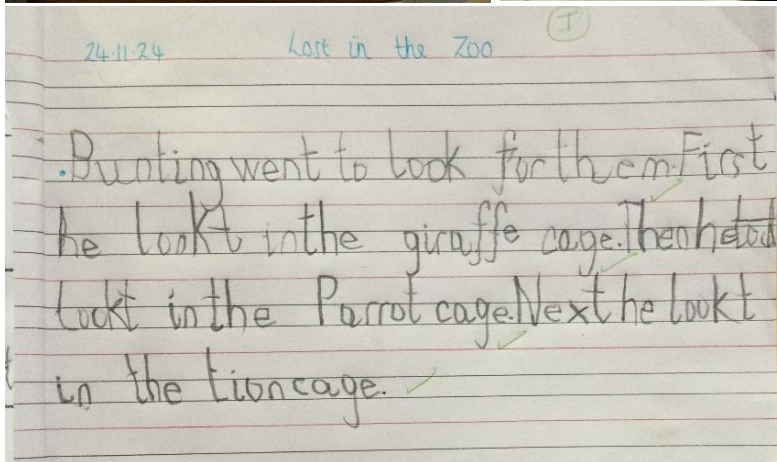 I
24.11.24 Lost in the Zoo
.Bunting went to look for them.First
he lookt in the giraffe cage.Then he
lookt in the Parrot cage.Next he lookt
in the Lion cage.